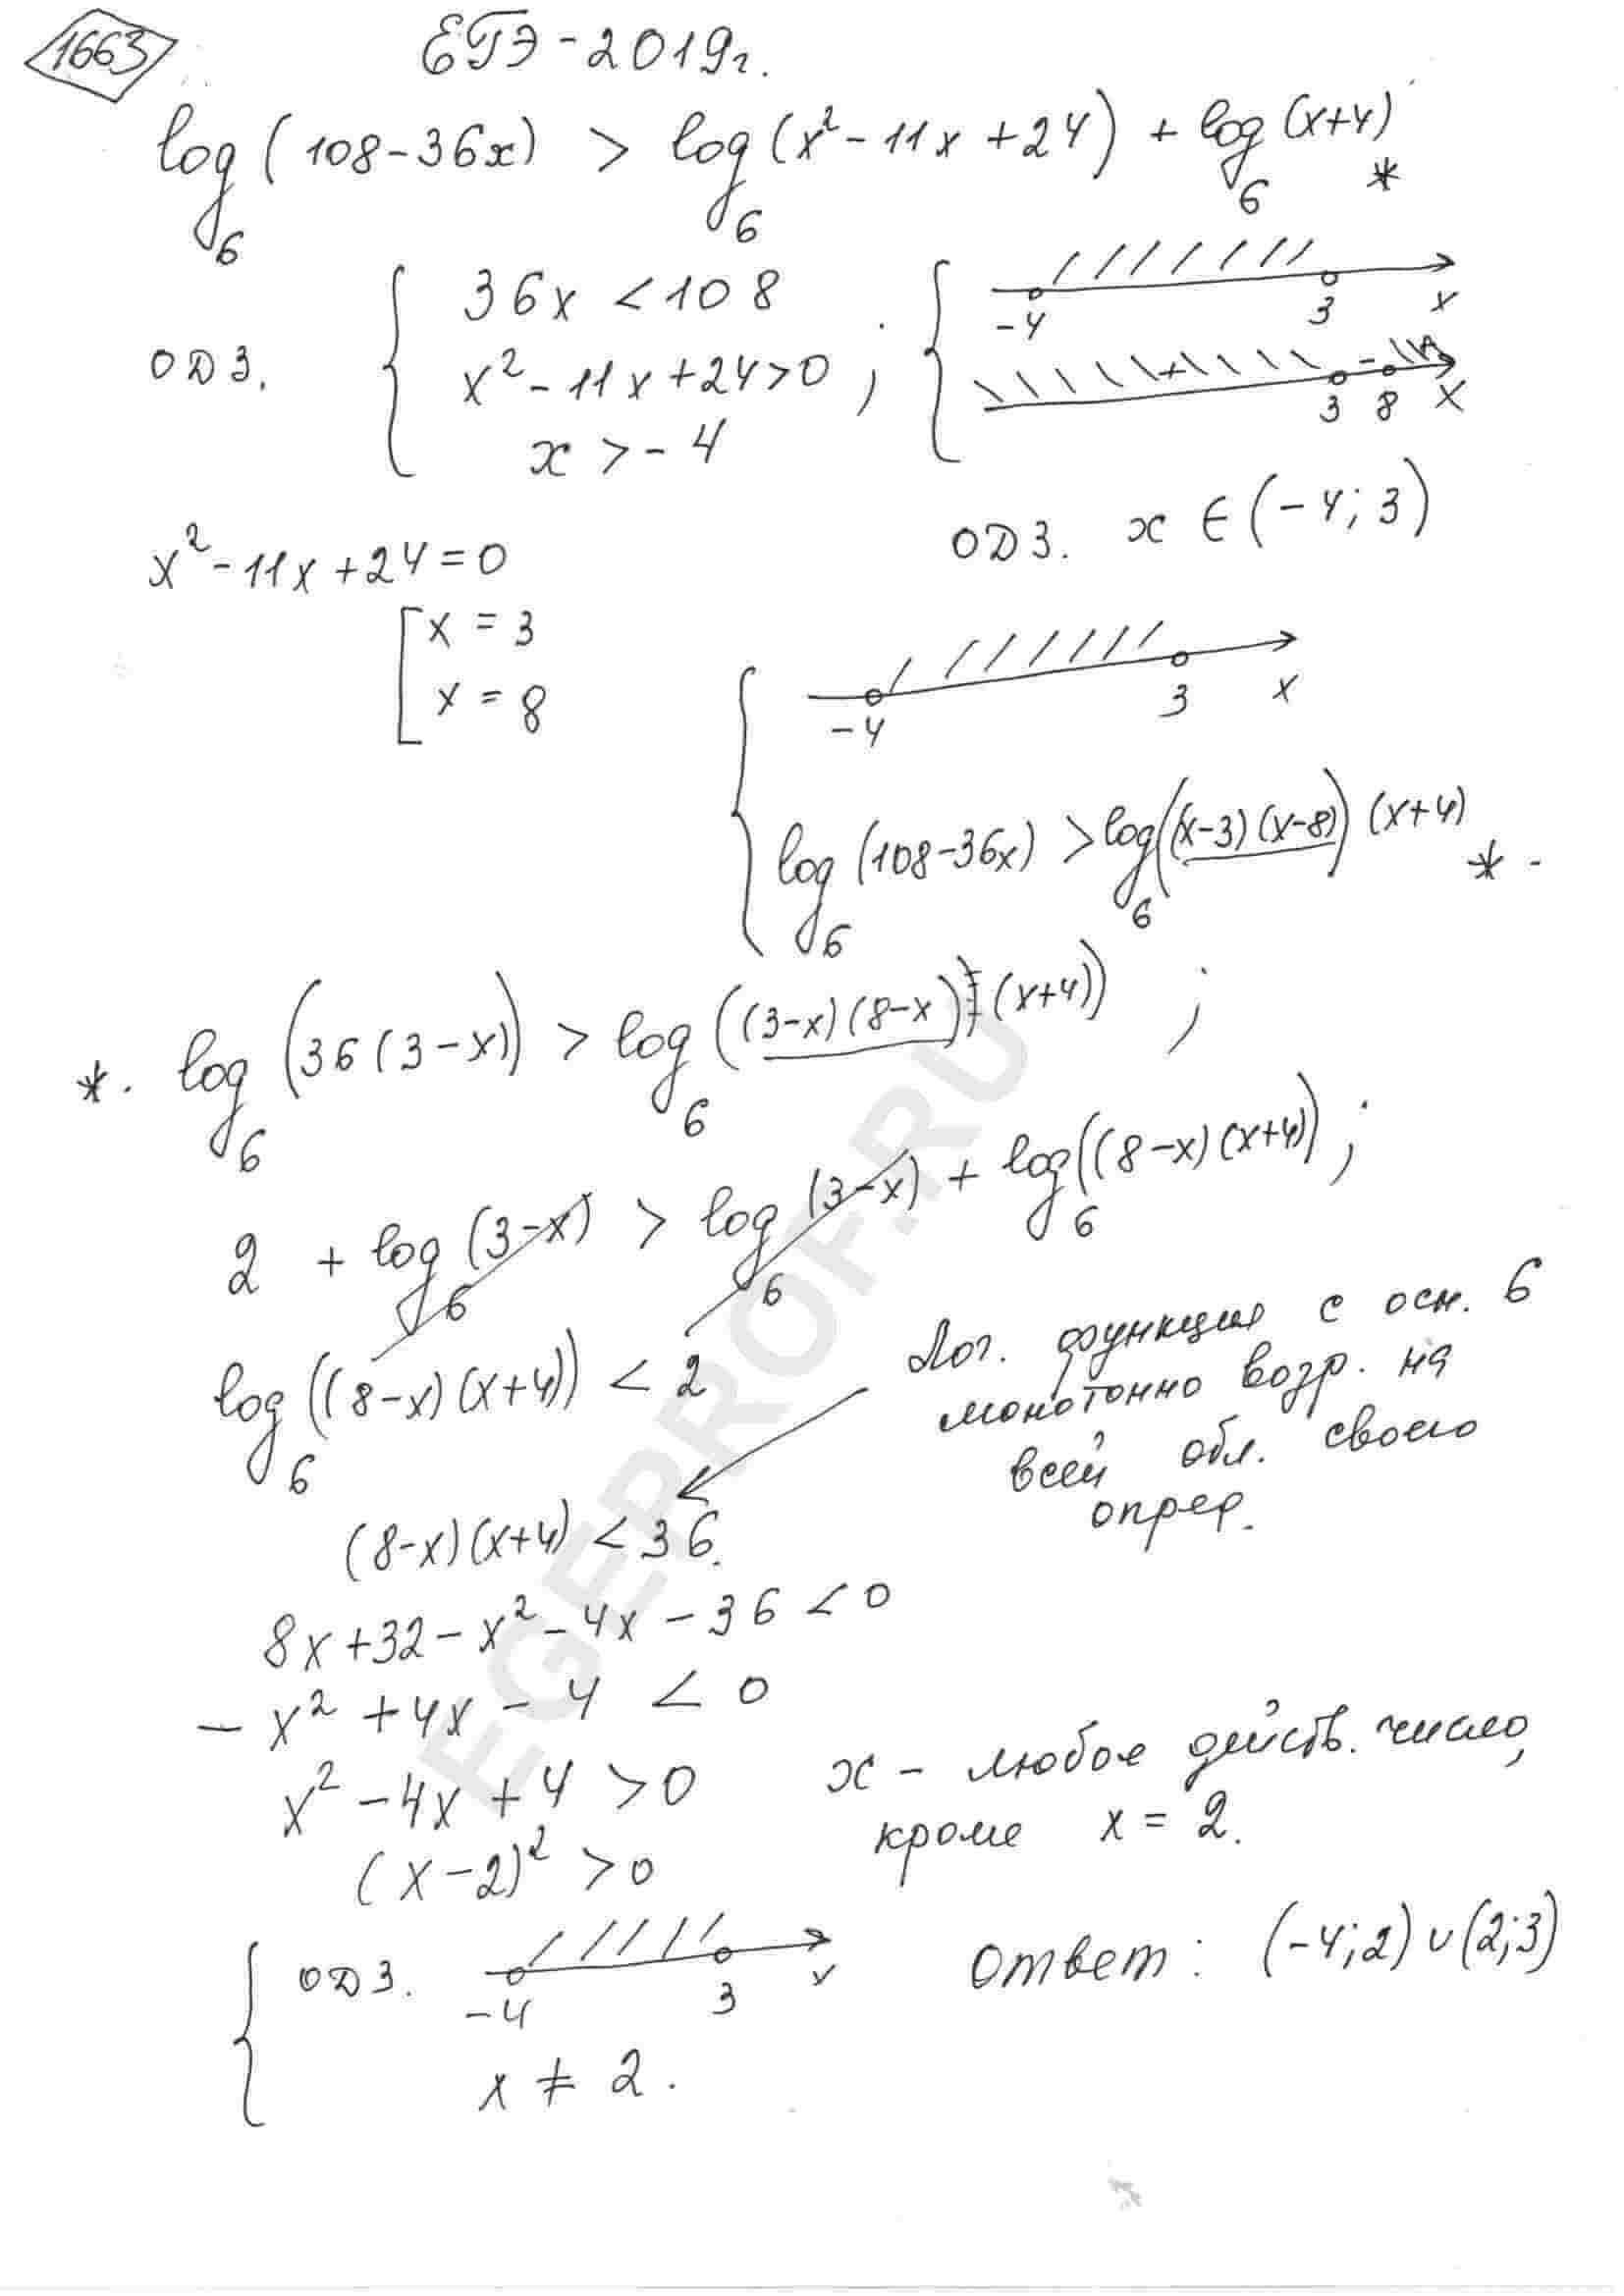 1663
ЕГЭ-2019г.
log₆(108-36x) > log₆(x²-11x+24) + log₆(x+4) *
ОДЗ. { 36x < 108
x²-11x+24>0 ;
x > -4
-4 3 x
+ - +
3 8 x
ОДЗ. x ∈ (-4; 3)
x²-11x+24=0
[ x = 3
x = 8
-4 3 x
log₆(108-36x) > log₆((x-3)(x-8))(x+4) * .
*. log₆(36(3-x)) > log₆((3-x)(8-x))(x+4)) ;
2 + log₆(3-x) > log₆(3-x) + log₆((8-x)(x+4)) ;
log₆((8-x)(x+4)) < 2
Лог. функция с осн. 6
монотонно возр. на
всей обл. своего
опред.
(8-x)(x+4) < 36.
8x+32-x²-4x-36 < 0
-x²+4x-4 < 0
x²-4x+4 > 0
x - любое действ. число,
кроме x = 2.
(x-2)² > 0
{ ОДЗ. -4 3 x
x ≠ 2.
Ответ: (-4;2)∪(2;3)
EGEPROF.RU